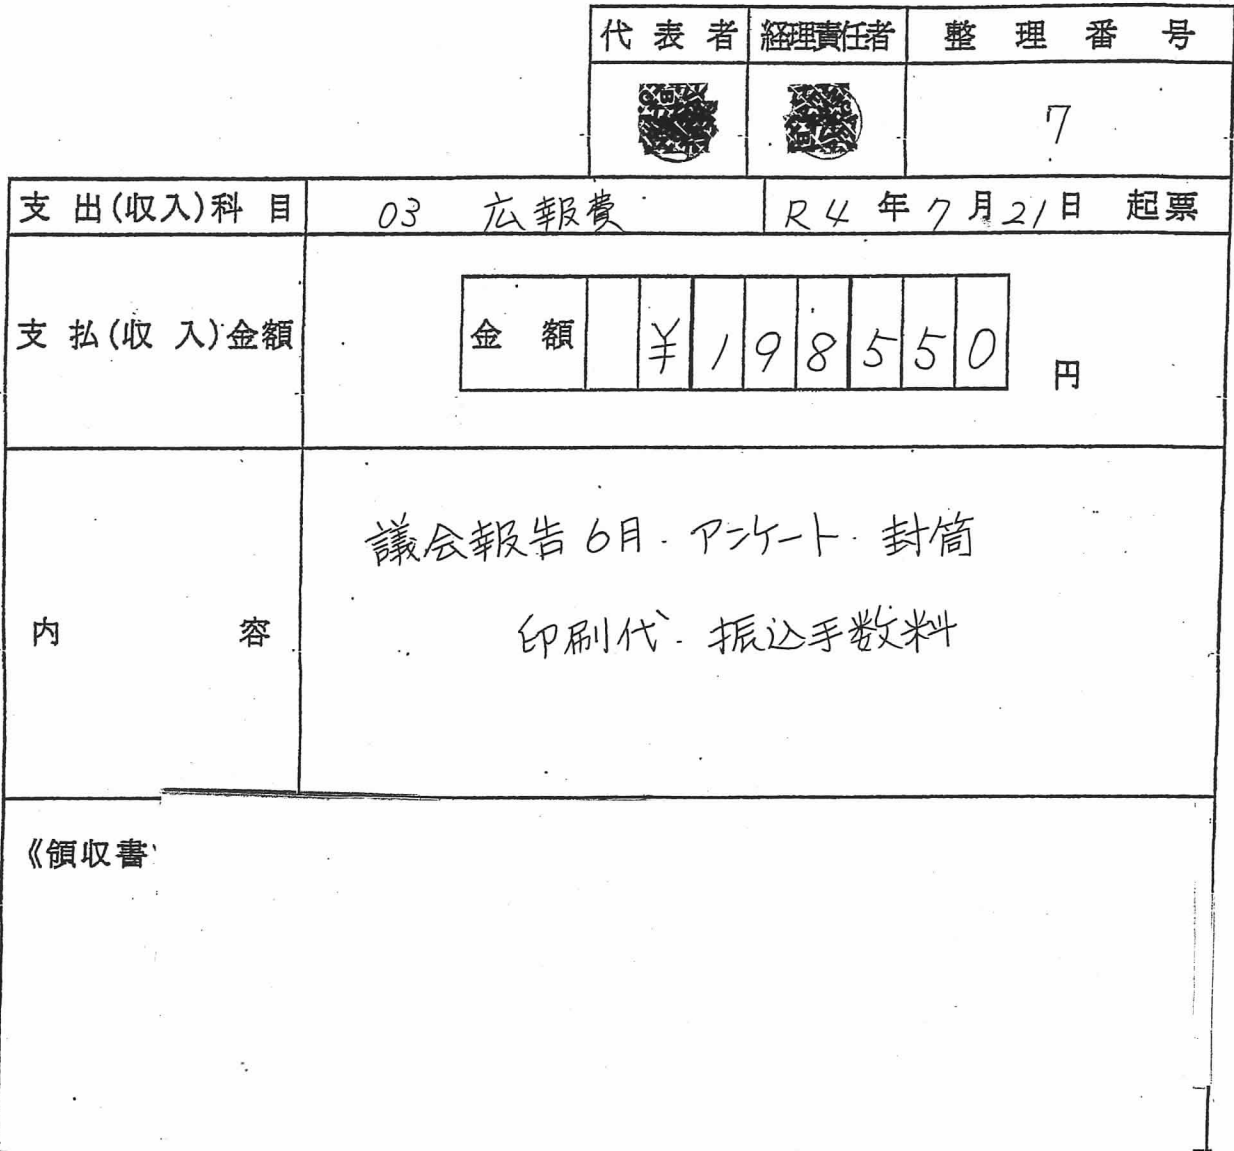 代表者 経理責任者 整理番号
7
支出(収入)科目 03 広報費 R4年7月21日 起票
支払(収入)金額 金額 ¥198550 円
議会報告6月.アンケート.封筒
内容 印刷代.振込手数料
《領収書